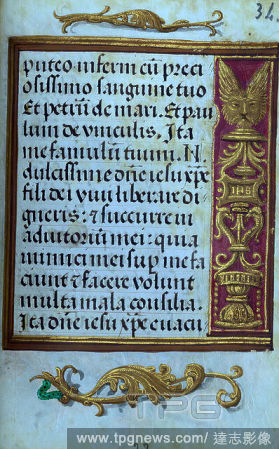 34
puteo inferni cū preci
osissimo sanguine tuo
Et petrū de mari. Et pau
lum de vinculis. Ita
me famulū tuum. N
dulcissime dn̄e iesu xp̄e
fili dei vivi liberare di
gneris: & succurre in
adiutoriū mei: quia
inimici mei sup me fa
ciunt & facere volunt
multa mala consilia.
Ita dn̄e iesu xp̄e evacu
IHS
TPG
www.tpgnews.com/ 達志影像